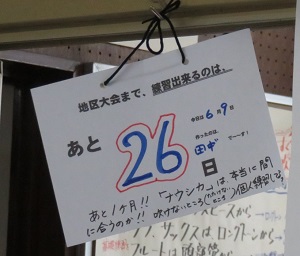 地区大会まで、練習出来るのは、
今日は6月9日
あと
26
日
作ったのは、
田中でーす!
あと1ヶ月!!「ナウシカ」は、本当に間
に合うのか!! 吹けないところ個人練習して
スピーズから
サックスはロングトーンから
フルートは